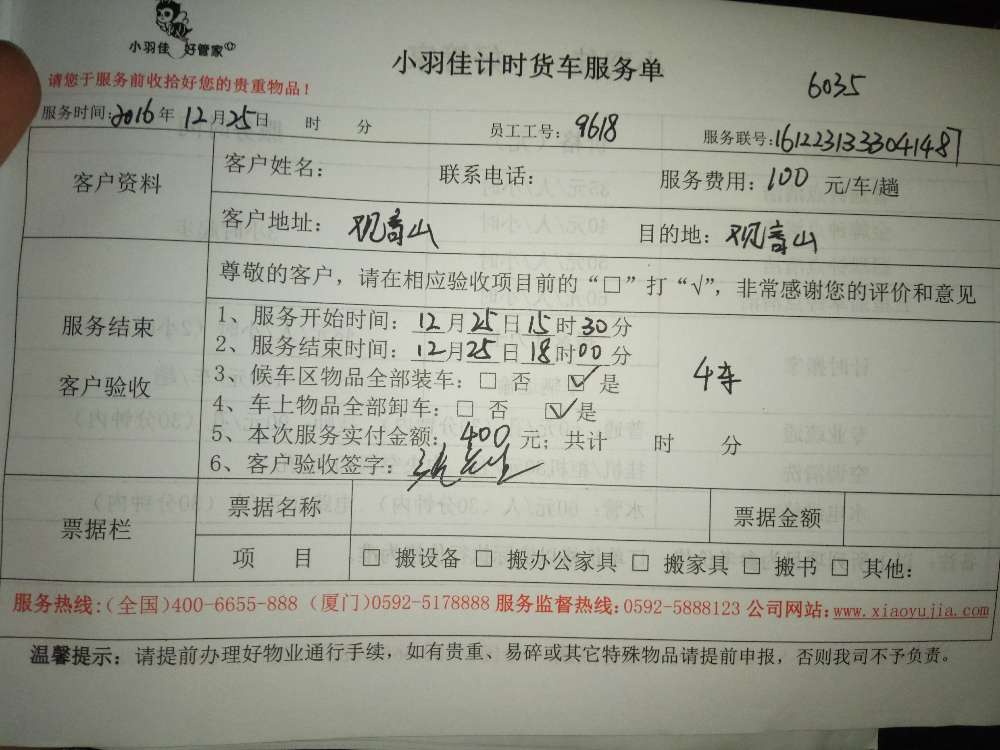 小羽佳 好管家
小羽佳计时货车服务单
6035
请您于服务前收拾好您的贵重物品！
服务时间：2016年 12月25日 时 分 员工工号：9618 服务联号：1612231333304148
客户资料 客户姓名： 联系电话： 服务费用：100 元/车/趟
客户地址： 观音山 目的地：观音山
服务结束
客户验收
尊敬的客户，请在相应验收项目前的“□”打“√”，非常感谢您的评价和意见
1、服务开始时间：12月25日15时30分
2、服务结束时间：12月25日18时00分
3、候车区物品全部装车：□ 否 ☑ 是
4车
4、车上物品全部卸车：□ 否 ☑是
5、本次服务实付金额：400元；共计 时 分
6、客户验收签字：
票据栏 票据名称 票据金额
项 目 □ 搬设备 □ 搬办公家具 □ 搬家具 □ 搬书 □ 其他：
服务热线:(全国)400-6655-888 (厦门)0592-5178888 服务监督热线:0592-5888123 公司网站:www.xiaoyujia.com
温馨提示：请提前办理好物业通行手续，如有贵重、易碎或其它特殊物品请提前申报，否则我司不予负责。